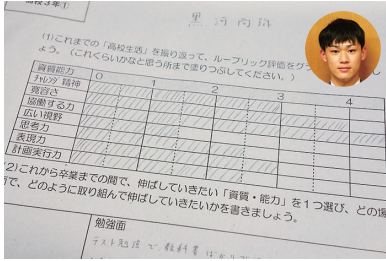 高校3年①
(1)これまでの「高校生活」を振り返って、ルーブリック評価をグラ
ょう。(これくらいかなと思う所まで塗りつぶしてください。)
資質能力 0 1 2 3 4
チャレンジ精神
寛容さ
協働する力
広い視野
思考力
表現力
計画実行力
(2)これから卒業までの間で、伸ばしていきたい「資質・能力」を1つ選び、どの場
で、どのように取り組んで伸ばしていきたいかを書きましょう。
勉強面
テスト勉強で、教科書ばかり